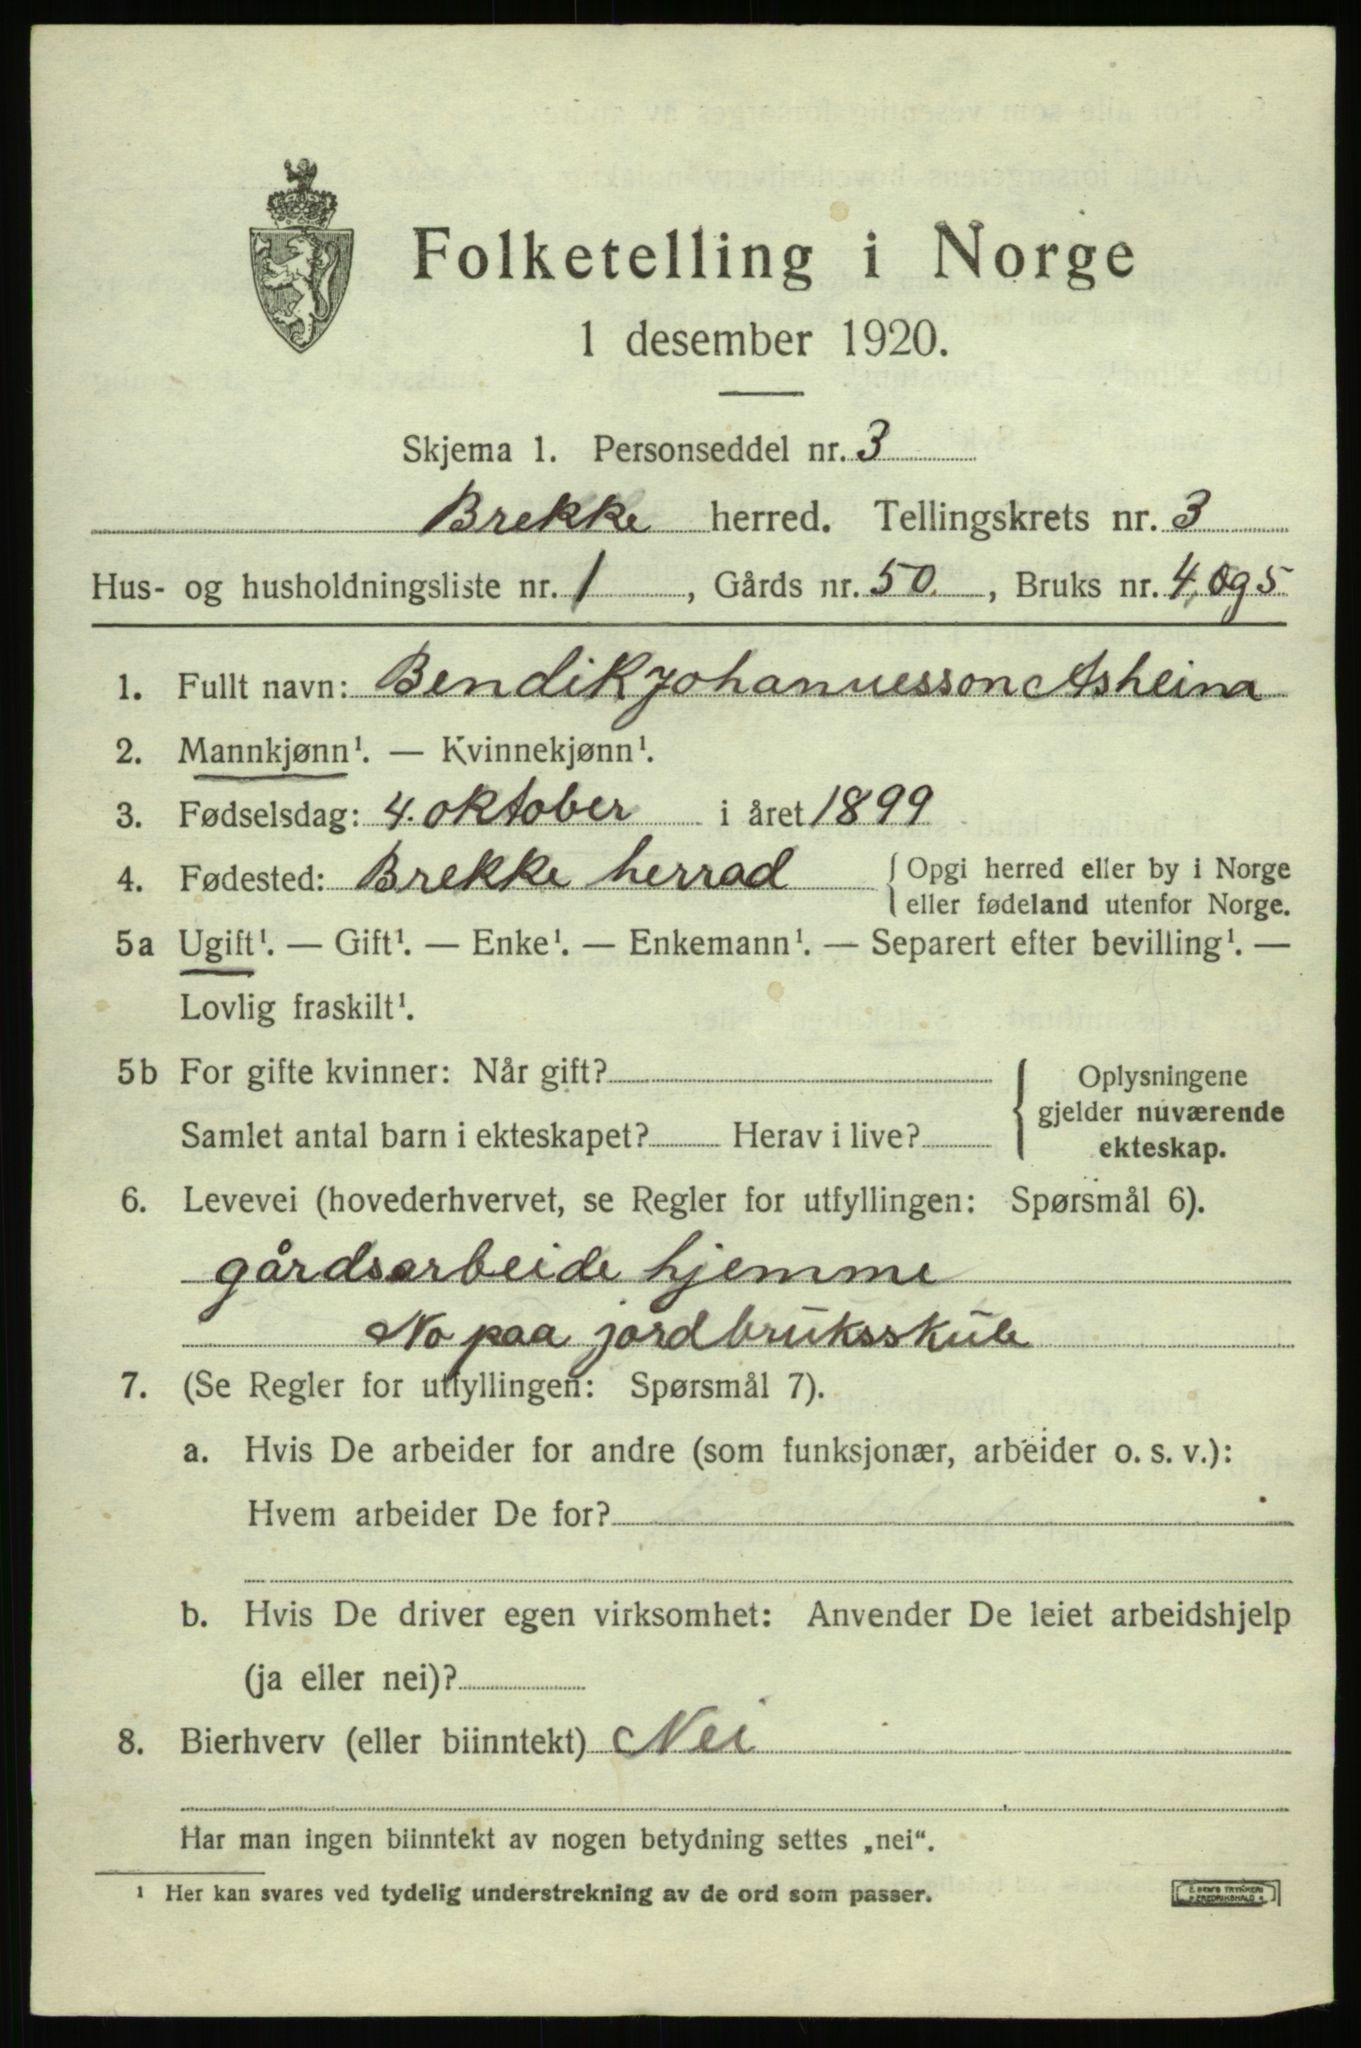 Folketelling i Norge
1 desember 1920.
Skjema 1. Personseddel nr. 3
Brekke herred. Tellingskrets nr. 3
Hus- og husholdningsliste nr. 1, Gårds nr. 50., Bruks nr. 4 og 5
1. Fullt navn: Bendik Johannesson Asheim
2. Mannkjønn¹. — Kvinnekjønn¹.
3. Fødselsdag: 4. oktober i året 1899
4. Fødested: Brekke herrad { Opgi herred eller by i Norge
eller fødeland utenfor Norge.
5a Ugift¹. — Gift¹. — Enke¹. — Enkemann¹. — Separert efter bevilling¹. —
Lovlig fraskilt¹.
5b For gifte kvinner: Når gift?
Samlet antal barn i ekteskapet? Herav i live?
{ Oplysningene
gjelder nuværende
ekteskap.
6. Levevei (hovederhvervet, se Regler for utfyllingen: Spørsmål 6).
gårdsarbeide hjemme
No paa jordbruksskule
7. (Se Regler for utfyllingen: Spørsmål 7).
a. Hvis De arbeider for andre (som funksjonær, arbeider o. s. v.):
Hvem arbeider De for?
b. Hvis De driver egen virksomhet: Anvender De leiet arbeidshjelp
(ja eller nei)?
8. Bierhverv (eller biinntekt) Nei
Har man ingen biinntekt av nogen betydning settes „nei“.
¹ Her kan svares ved tydelig understrekning av de ord som passer.